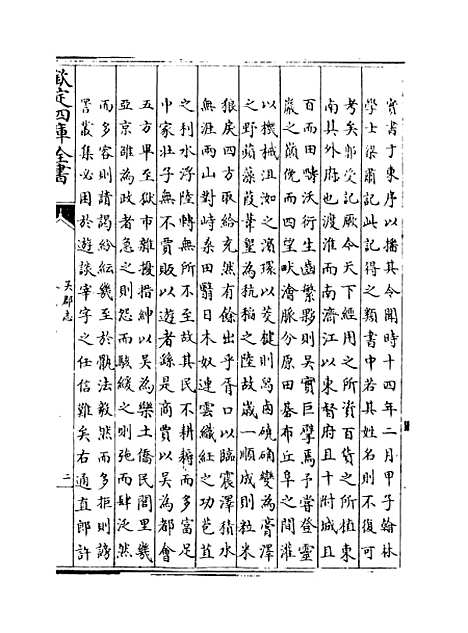 實書于東序以播其令聞時十四年二月甲子翰林
學士梁肅記此記得之類書中若其姓名則不復可
考矣郭受記厥今天下經用之所資百貨之所植東
南其外府也渡淮而南濟江以東督府且十附城且
百而田疇沃衍生齒繁夥則吳實巨擘焉予嘗登靈
巖之巔俛而四望畎澮脈分原田棊布丘阜之間灌
以機械沮洳之濵環以茭楗則舄鹵磽确變為膏澤
之野蘋藻葭葦墾為秔稻之陸故歲一順成則粒米
狼戾四方取給充然有餘出乎胥口以臨震澤積水
無涯而山對峙桑田翳日木奴連雲織紝之功苞苴
之利水浮陸轉無所不至故其民不耕耨而多富足
中家壯子無不賈販以遊者繇是商賈以吳為都會
五方畢至獄市雜擾搢紳以吳為樂土僑民閭里幾
亞京雒為政者急之則怨而駭緩之則弛而肆泛然
而多容則請謁紛紜幾至於骫法毅然而多拒則謗
詈叢集必困於遊談宰字之任信難矣右通直郎許
欽定四庫全書
吳郡志
二